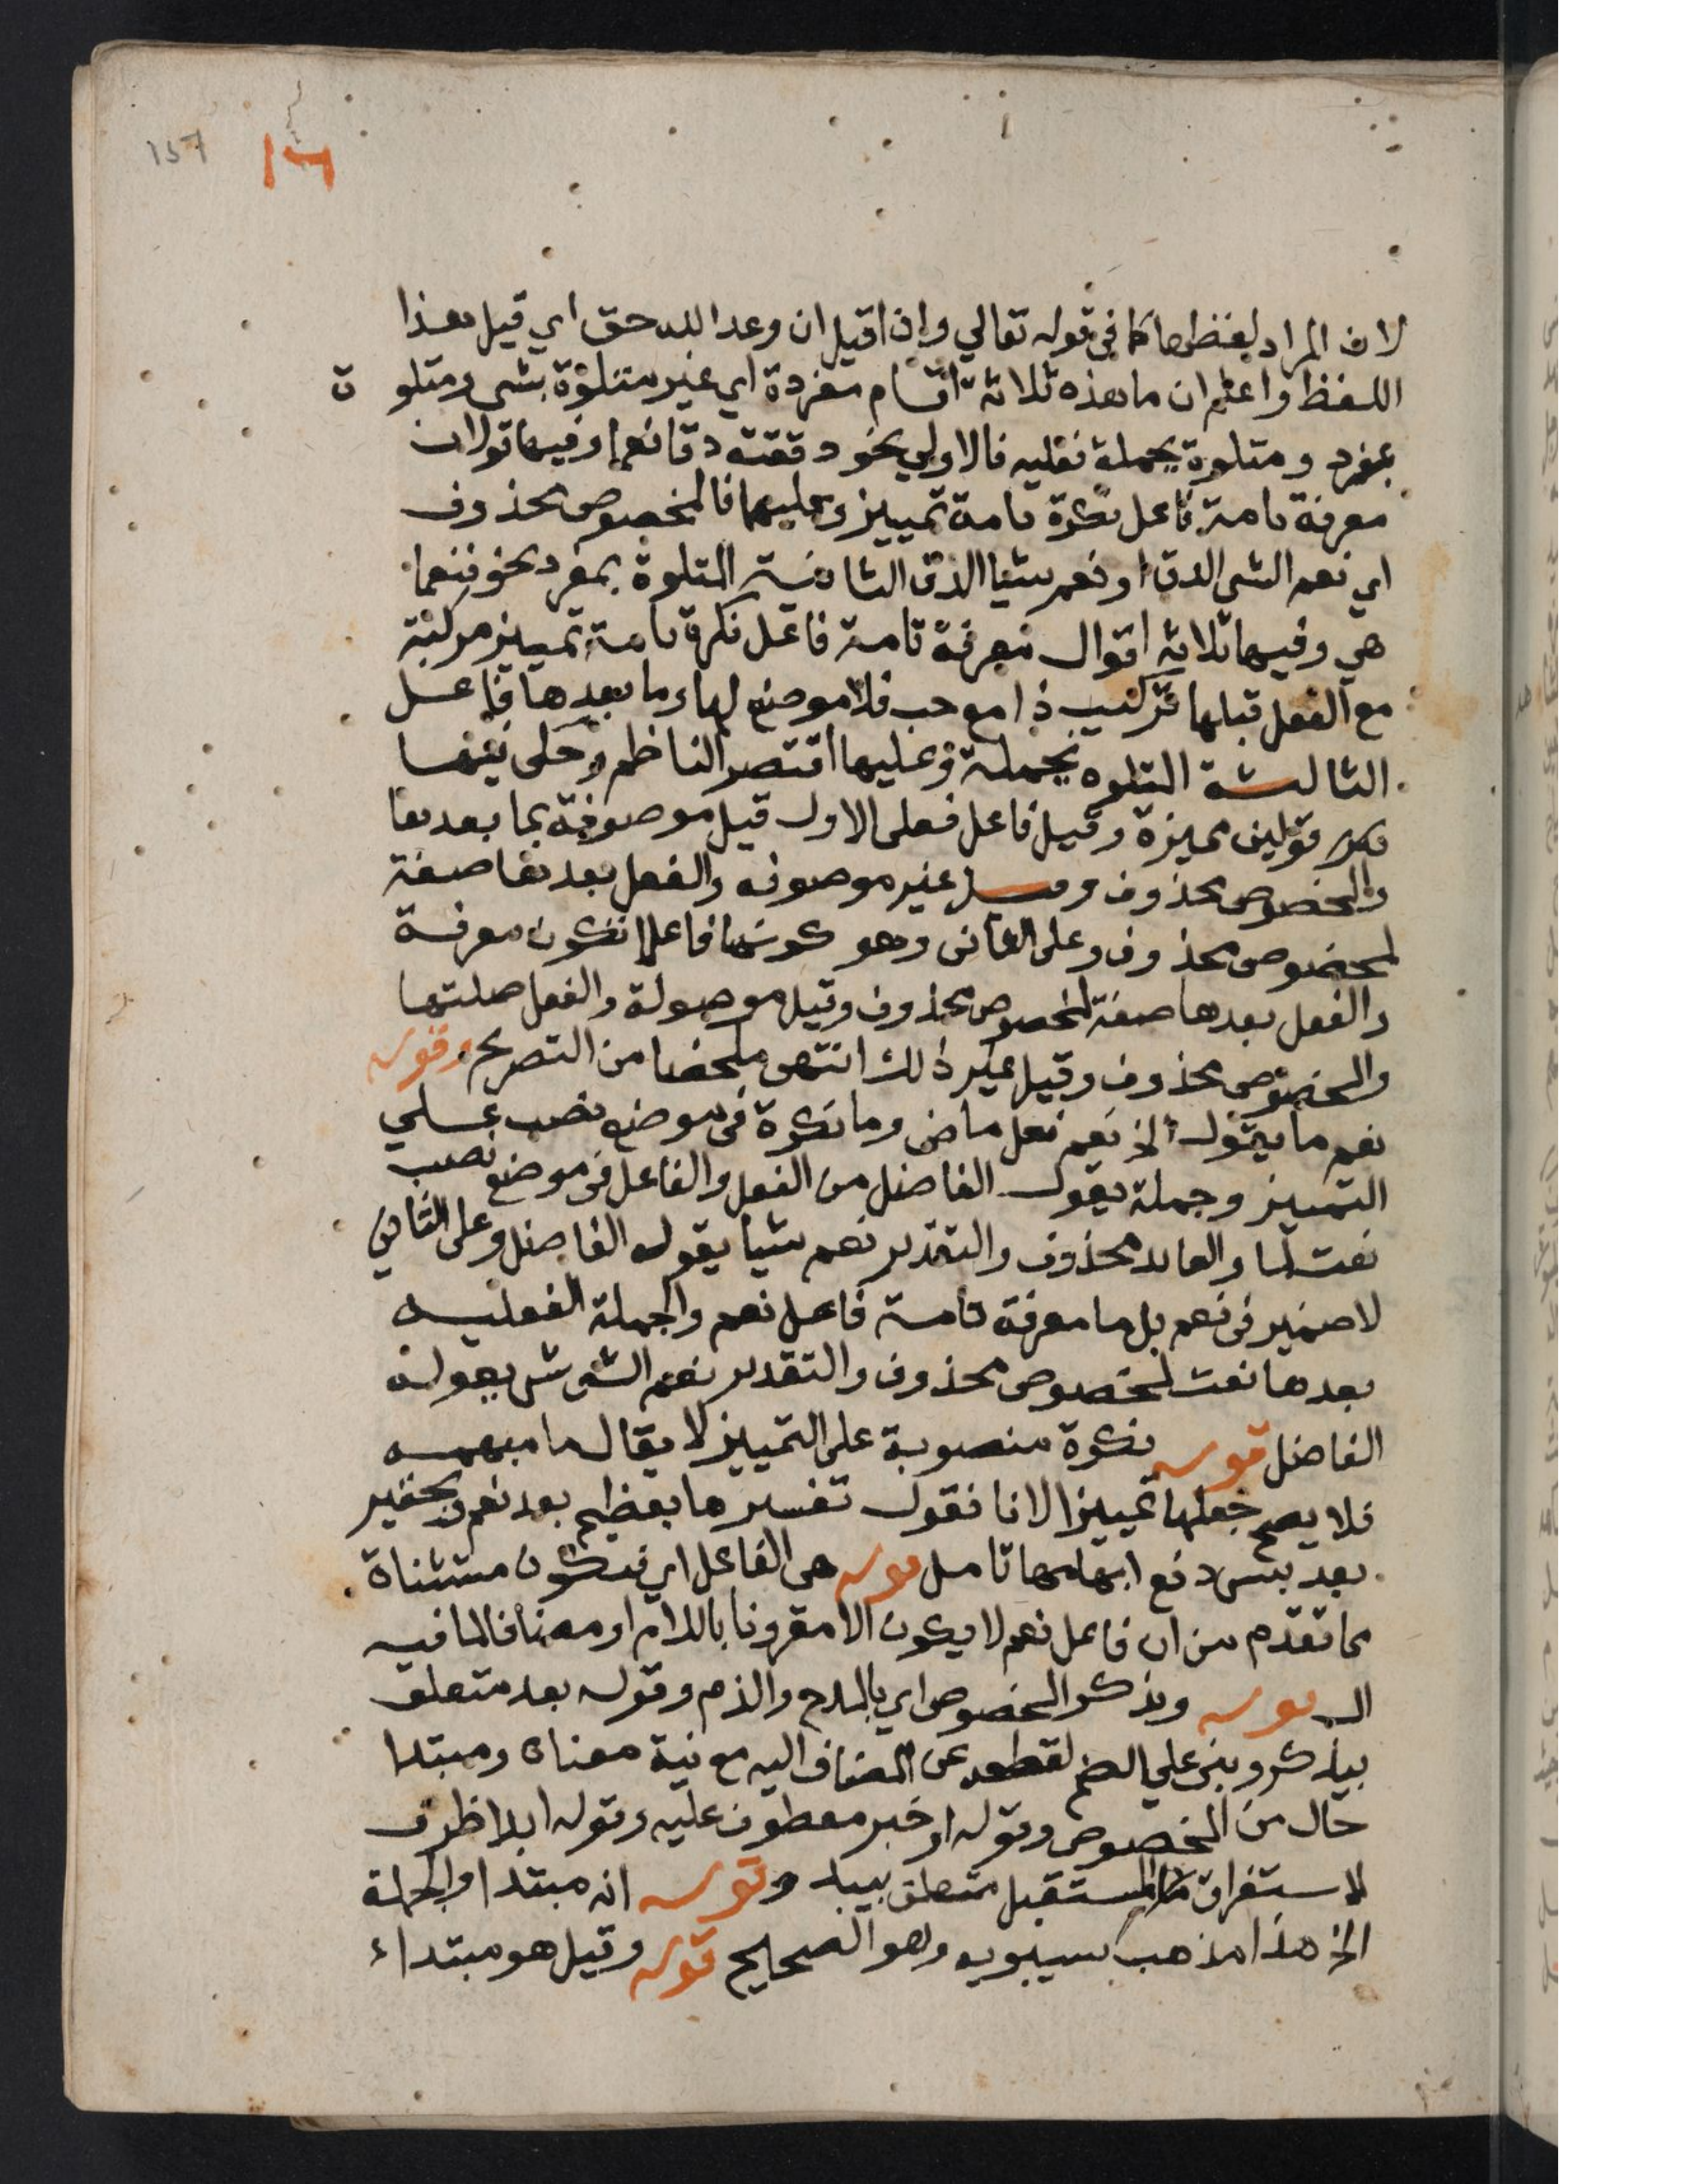 157 16
لان المراد لفظها كما في قوله تعالي واذا قيل ان وعد الله حق اي قيل هذا
اللفظ واعلم ان ما هذه ثلاثة اقسام مفردة اي غير متلوة بشي ومتلوة
بمفرد ومتلوة بجملة فعليه فالاولي نحو دققته دقا نعما وفيها قولان
معرفة تامة فاعل نكرة تامة تمييز وعليهما فالمخصوص محذوف
اي نعم الشي الدق او نعم شيا الدق الثانية المتلوة بمفرد نحو فنعما
هي وفيها ثلاثه اقوال معرفة تامة فاعل نكرة تامة تمييز مركبة
مع الفعل قبلها تركيب ذا مع حب فلا موضع لها وما بعدها فاعل
الثالثة المتلوه بجملة وعليها اقتصر الناظم وحكي فيها
قولين مميزة وقيل فاعل فعلى الاول قيل موصوفة بما بعدها
والمخصوص محذوف وقيل غير موصوفه والفعل بعدها صفة
لمخصوص محذوف وعلى الثاني وهو كونها فاعلا تكون معرفة
والفعل بعدها صفة لمخصوص محذوف وقيل موصولة والفعل صلتها
والمخصوص محذوف وقيل غير ذلك انتهى ملخصا من التصريح وقوله
نعم ما يقول الخ نعم فعل ماض وما نكرة في موضع نصب علي
التمييز وجملة يقول الفاضل من الفعل والفاعل في موضع نصب
نعت لما والعائد محذوف والتقدير نعم شيأ يقوله الفاضل وعلى الثاني
لا ضمير في نعم بل ما معرفة تامة فاعل نعم والجملة الفعليه
بعدها نعت لمخصوص محذوف والتقدير نعم الشي شي يقوله
الفاضل قوله نكرة منصوبة على التمييز لا يقال ما مبهمه
فلا يصح جعلها تمييزا لانا نقول تفسر ها بعظيم بعد نعم وبحقير
بعد بئس دفع ابهامها تامل قوله هي الفاعل اي فتكون مستثناة
مما تقدم من ان فاعل نعم لا يكون الا مقرونا باللام او مضافا لما فيه
ال قوله ويذكر المخصوص اي بالمدح والذم وقوله بعد متعلق
بيذكر وبني علي الضم لقطعه عن المضاف اليه مع نية معناه ومبتدا
حال من المخصوص وقوله او خبر معطوف عليه وقوله ابدا ظرف
لاستغراق المستقبل متعلق بيبد وقوله انه مبتدا والجملة
الخ هذا مذهب سيبويه وهو الصحيح قوله وقيل هو مبتداء